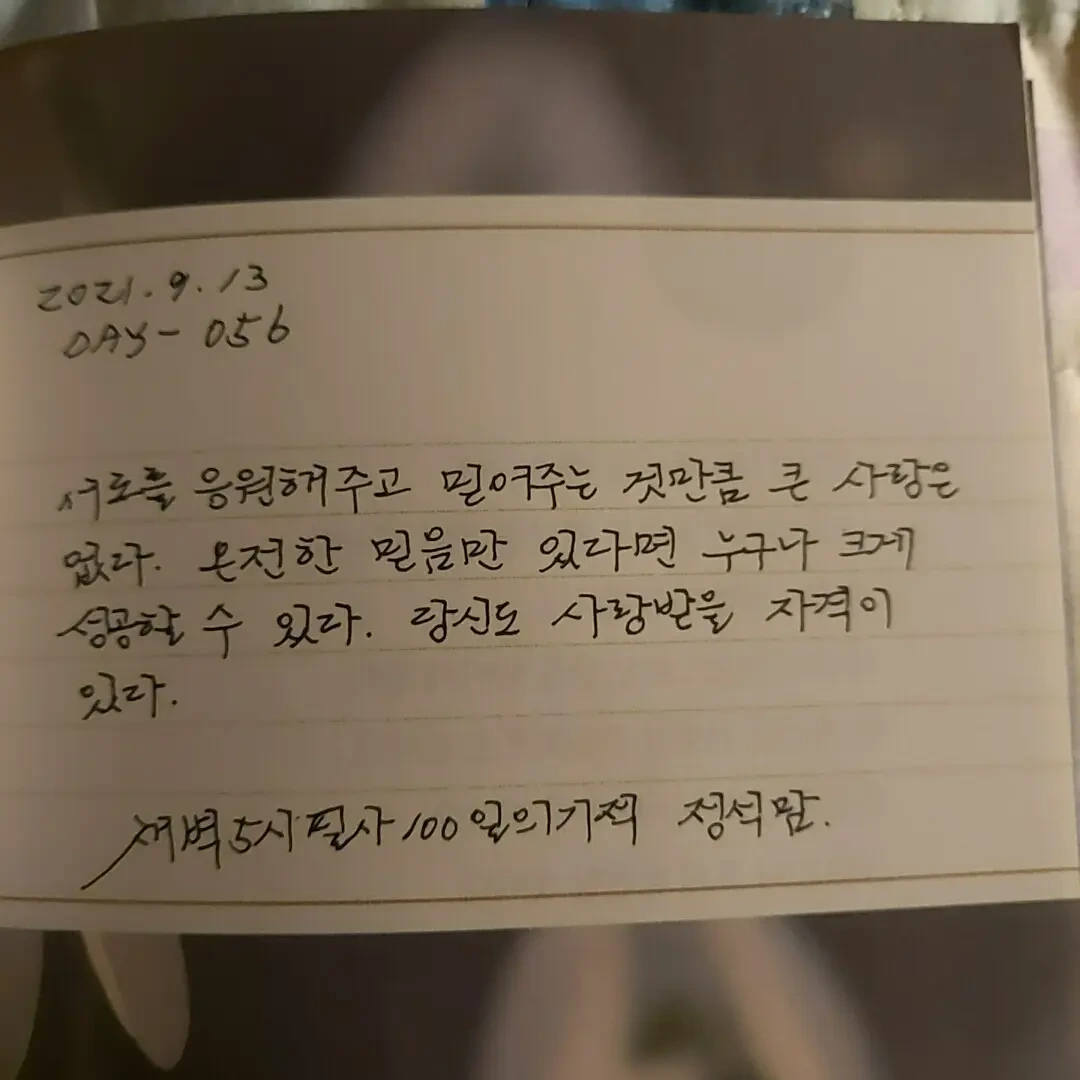 2021.9.13
DAY-056
서로를 응원해주고 믿어주는 것만큼 큰 사랑은
없다. 온전한 믿음만 있다면 누구나 크게
성공할 수 있다. 당신도 사랑받을 자격이
있다.
새벽5시필사100일의기적 정석맘.